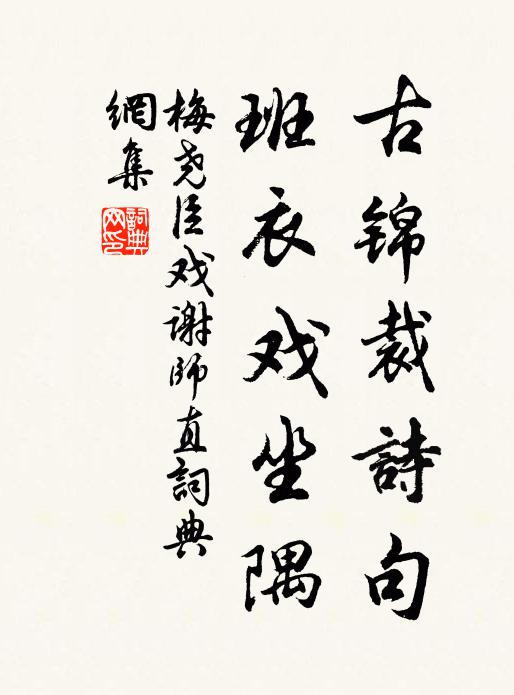 古锦裁詩句
班衣戏坐隅
梅尧臣戏谢師直詞典
網集
詞典
网印